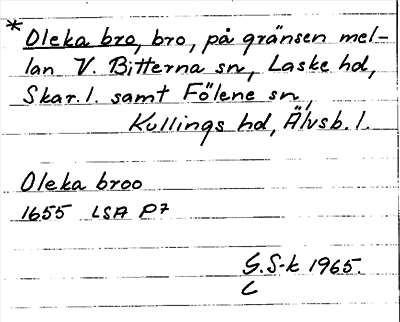 * Oleka bro, bro, på gränsen mel-
lan V. Bitterna sn, Laske hd,
Skar. l. samt Fölene sn,
Kullings hd, Älvsb. l.
Oleka broo
1655 LSA P7
G.S-k 1965.
C